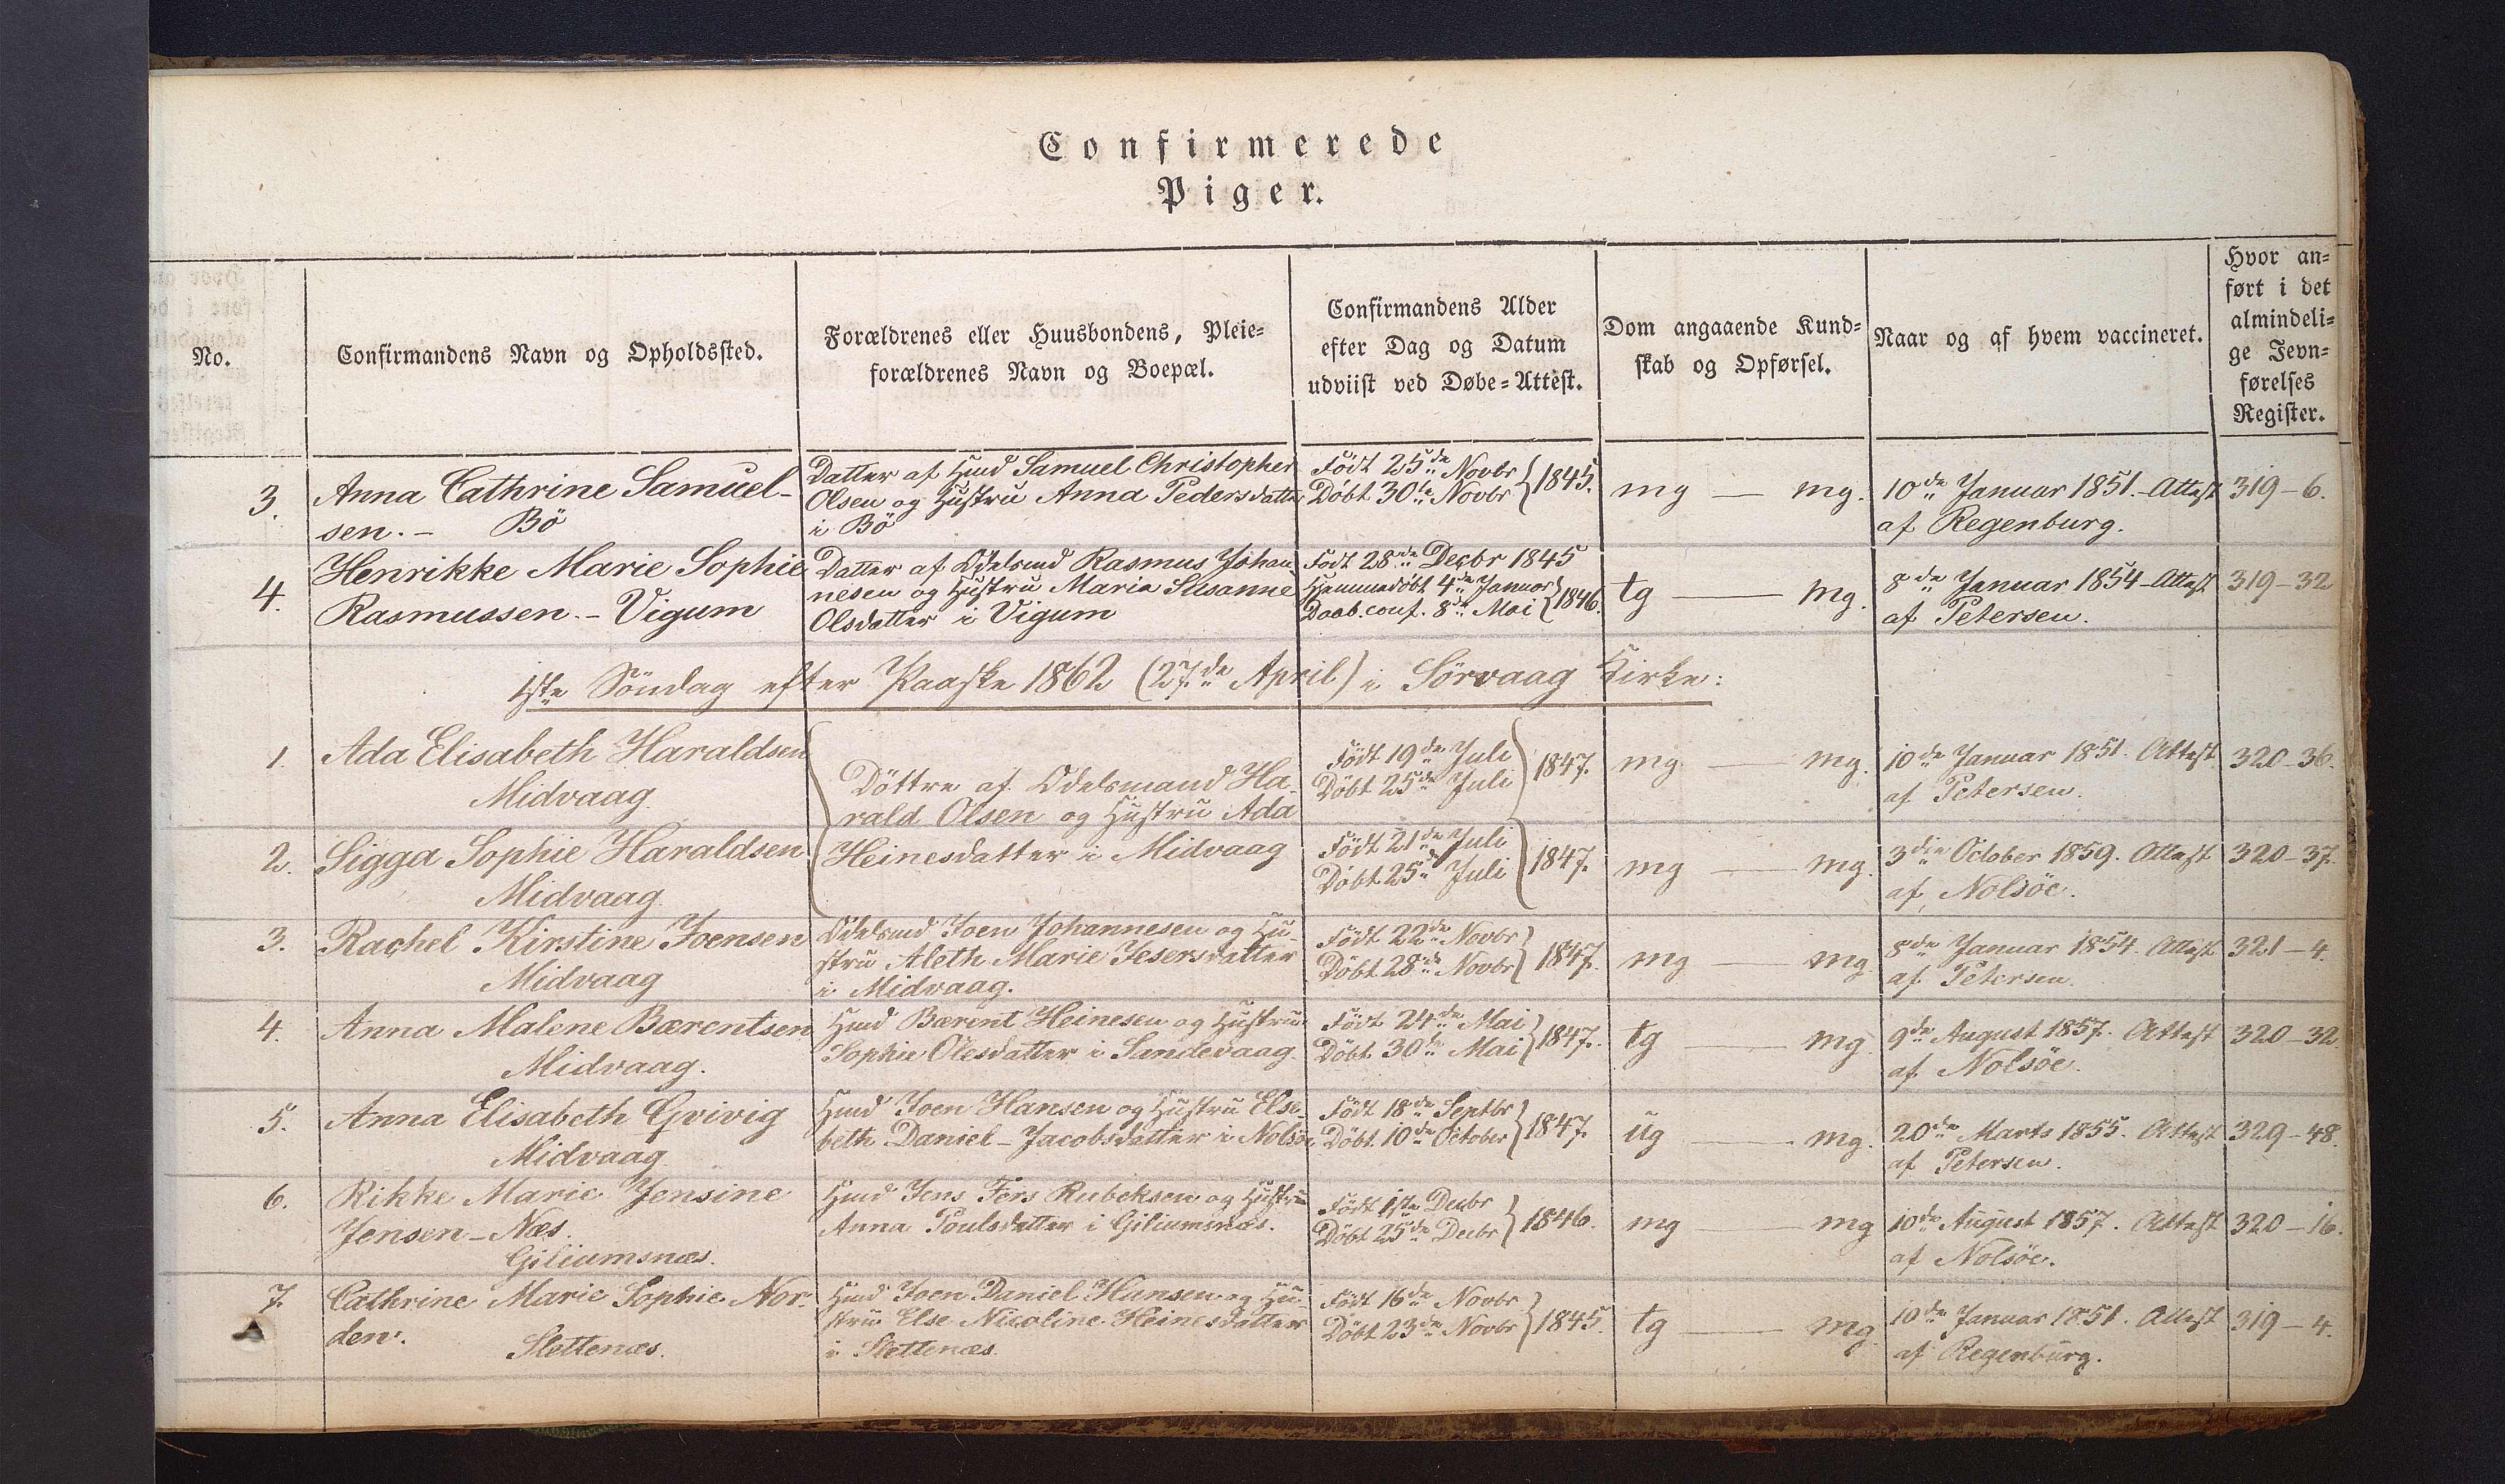 Confirmerede
Piger.
No.
Confirmandens Navn og Opholdssted.
Forældrenes eller Huusbondens, Pleie-
forældrenes Navn og Boepæl.
Confirmandens Alder
efter Dag og Datum
udviist ved Døbe-Attest.
Dom angaaende Kund-
skab og Opførsel.
Naar og af hvem vaccineret.
Hvor an-
ført i det
almindeli-
ge Jevn-
førelses
Register.
3.
Anna Cathrine Samuel-
sen. - Bö
Datter af Hmd Samuel Christopher
Olsen og Hustru Anna Pedersdatter
i Bö
Födt 25de Novbr
Döbt 30te Novbr } 1845.
mg — mg.
10de Januar 1851 - Attest
af Regenburg.
319 - 6.
4.
Henrikke Marie Sophie
Rasmussen. - Vigum
Datter af Odelsmd Rasmus Johan-
nesen og Hustru Maria Susanne
Olsdatter i Vigum
Födt 28de Decbr 1845
Hjemmedöbt 4de Januar
Daab. conf. 8de Mai } 1846.
tg — mg.
8de Januar 1854 - Attest
af Petersen.
319 - 32
1ste Söndag efter Paaske 1862 (27de April) i Sörvaag Kirke:
1.
Ada Elisabeth Haraldsen
Midvaag.
Döttre af Odelsmand Ha-
rald Olsen og Hustru Ada
Heinesdatter i Midvaag
Födt 19de Juli
Döbt 25de Juli } 1847.
mg. — mg.
10de Januar 1851. Attest
af Petersen.
320 - 36.
2.
Sigga Sophie Haraldsen
Midvaag.
Födt 21de Juli
Döbt 25de Juli } 1847.
mg — mg.
3die October 1859. Attest
af Nolsöe.
320 - 37.
3.
Rachel Kirstine Joensen
Midvaag
Odelsmd Joen Johannesen og Hu-
stru Aleth Marie Jesersdatter
i Midvaag.
Födt 22de Novbr
Döbt 28de Novbr } 1847.
mg — mg.
8de Januar 1854. Attest
af Petersen.
321 - 4.
4.
Anna Malene Bærentsen
Midvaag.
Hmd Bærent Heinesen og Hustru
Sophie Olesdatter i Sandevaag.
Födt 24de Mai
Döbt. 30te Mai } 1847.
tg — mg.
9de August 1857. Attest
af Nolsöe.
320 - 32.
5.
Anna Elisabeth Qvivig
Midvaag
Hmd Joen Hansen og Hustru Else-
beth Daniel-Jacobsdatter i Nolsö.
Födt 18de Septbr
Döbt. 10de October } 1847.
ug — mg.
20de Marts 1855. Attest
af Petersen.
329 - 48.
6.
Rikke Marie Jensine
Jensen - Næs.
Giliumsnæs.
Hmd Jens Fers Rubeksen og Hustru
Anna Poulsdatter i Giliumsnæs.
Födt 1ste Decbr
Döbt 25de Decbr } 1846.
mg — mg
10de August 1857. Attest
af Nolsöe.
320 - 16.
7.
Cathrine Marie Sophie Nor-
den.
Slettenæs.
Hmd Joen Daniel Hansen og Hu-
stru Else Nicoline Heinesdatter
i Slettenæs.
Födt 16de Novbr
Döbt 23de Novbr } 1845.
tg — mg.
10de Januar 1851. Attest
af Regenburg.
319 - 4.